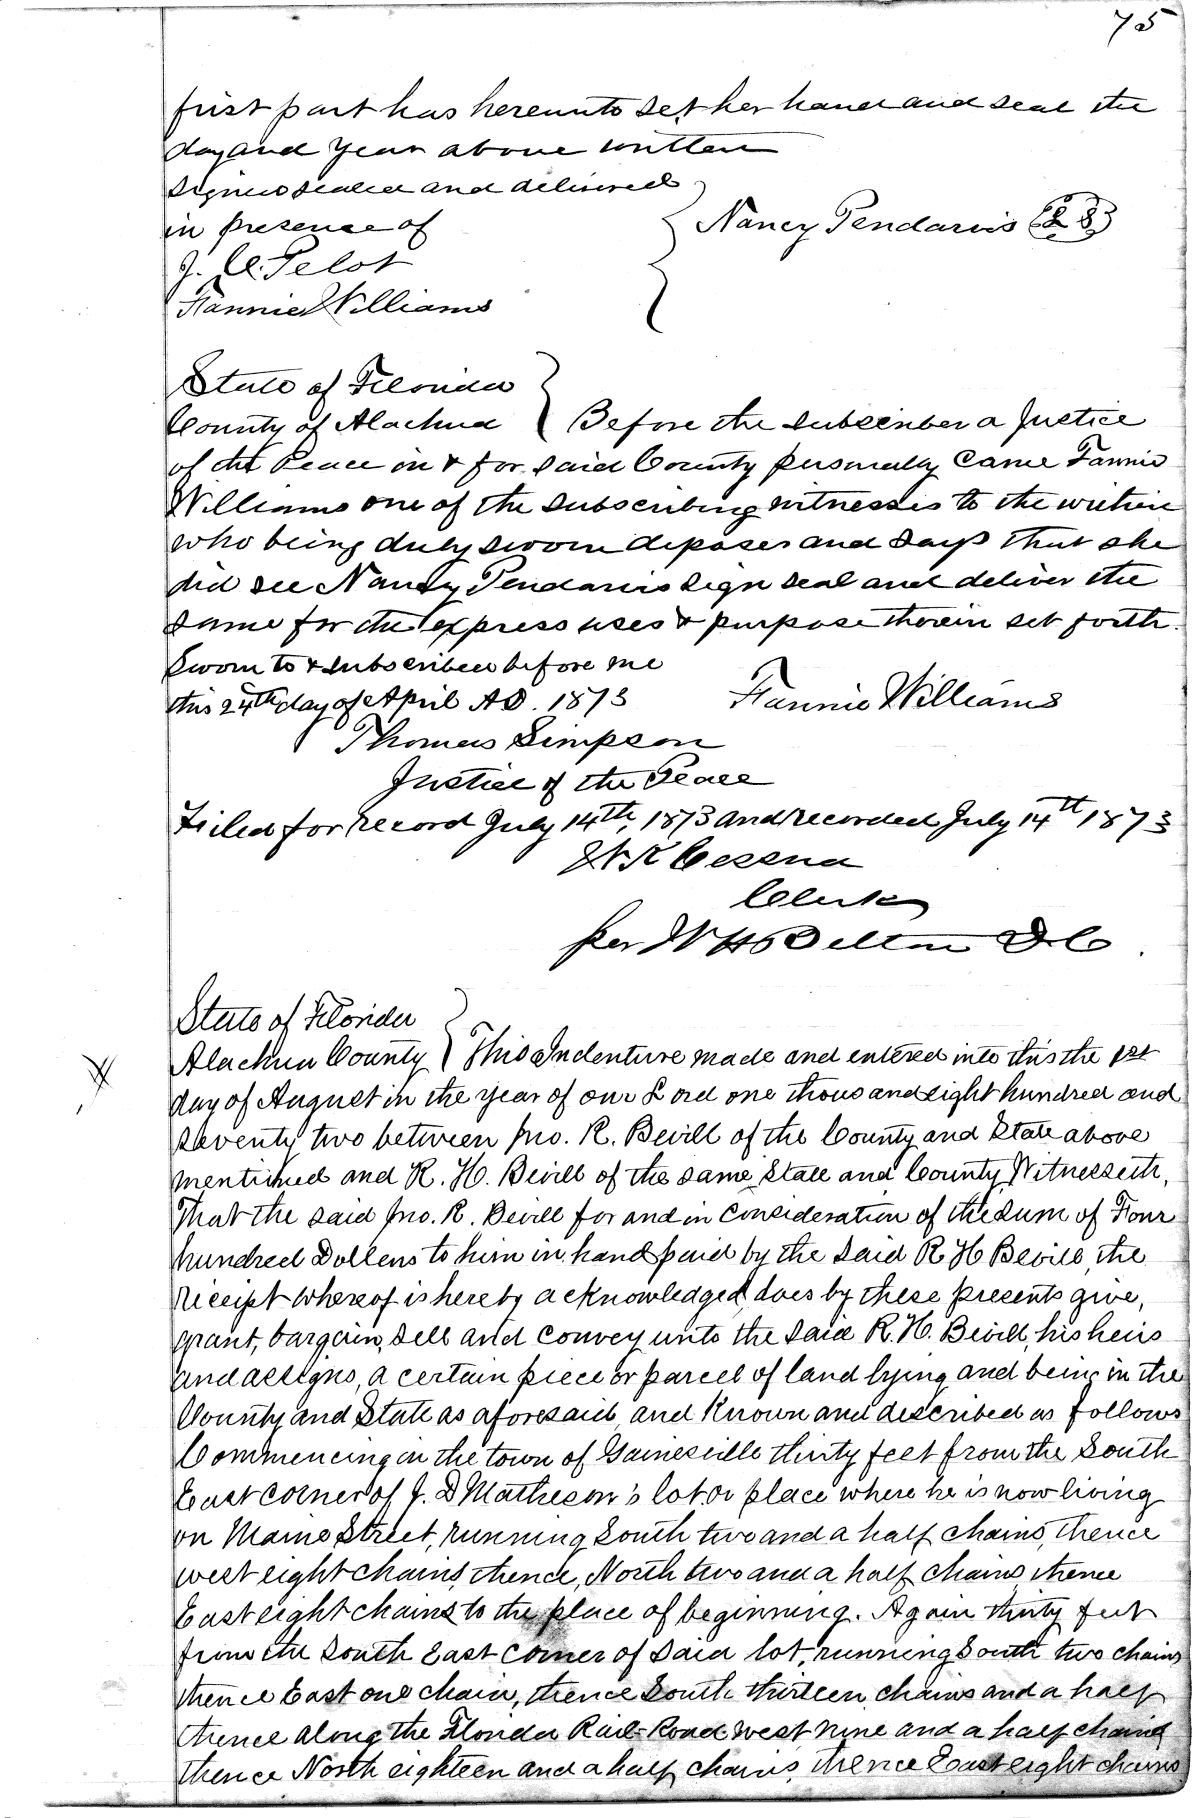 75
first part has hereunto set her hand and seal the
day and year above written
Signed sealed and delivered
in presence of
Nancy Pendarvis L S
J. C. Pelot
Fannie Williams
State of Florida
County of Alachua } Before the subscriber a Justice
of the Peace in & for said County personally came Fannie
Williams one of the subscribing witnesses to the within
who being duly sworn deposes and says that she
did see Nancy Pendarvis sign seal and deliver the
same for the express uses & purpose therein set forth.
Sworn to & subscribed before me
this 24th day of April AD. 1873 Fannie Williams
Thomas Simpson
Justice of the Peace
Filed for record July 14th, 1873 and recorded July 14th 1873
W K Cessna
Clerk
per W H Belton D C.
State of Florida
Alachua County } This Indenture made and entered into this the 1st
day of August in the year of our Lord one thousand eight hundred and
seventy two between Jno. R. Bevill of the County and State above
mentioned and R. H. Bevill of the same State and County, Witnesseth,
That the said Jno. R. Bevill for and in consideration of the sum of Four
hundred Dollers to him in hand paid by the said R H Bevill, the
receipt whereof is hereby acknowledged, does by these presents give,
grant, bargain, sell and convey unto the said R. H. Bevill, his heirs
and assigns, a certain piece or parcel of land lying and being in the
County and State as aforesaid, and known and described as follows
Commencing in the town of Gainesville thirty feet from the South
East corner of J. D Matheson's lot or place where he is now living
on Maine Street, running South two and a half chains, thence
west eight chains, thence, North two and a half chains, thence
East eight chains to the place of beginning. Again thirty feet
from the South East corner of said lot, running South two chains
thence East one chain, thence South thirteen chains and a half
thence along the Florida Rail-Road west nine and a half chains
thence North eighteen and a half chains, thence East eight chains